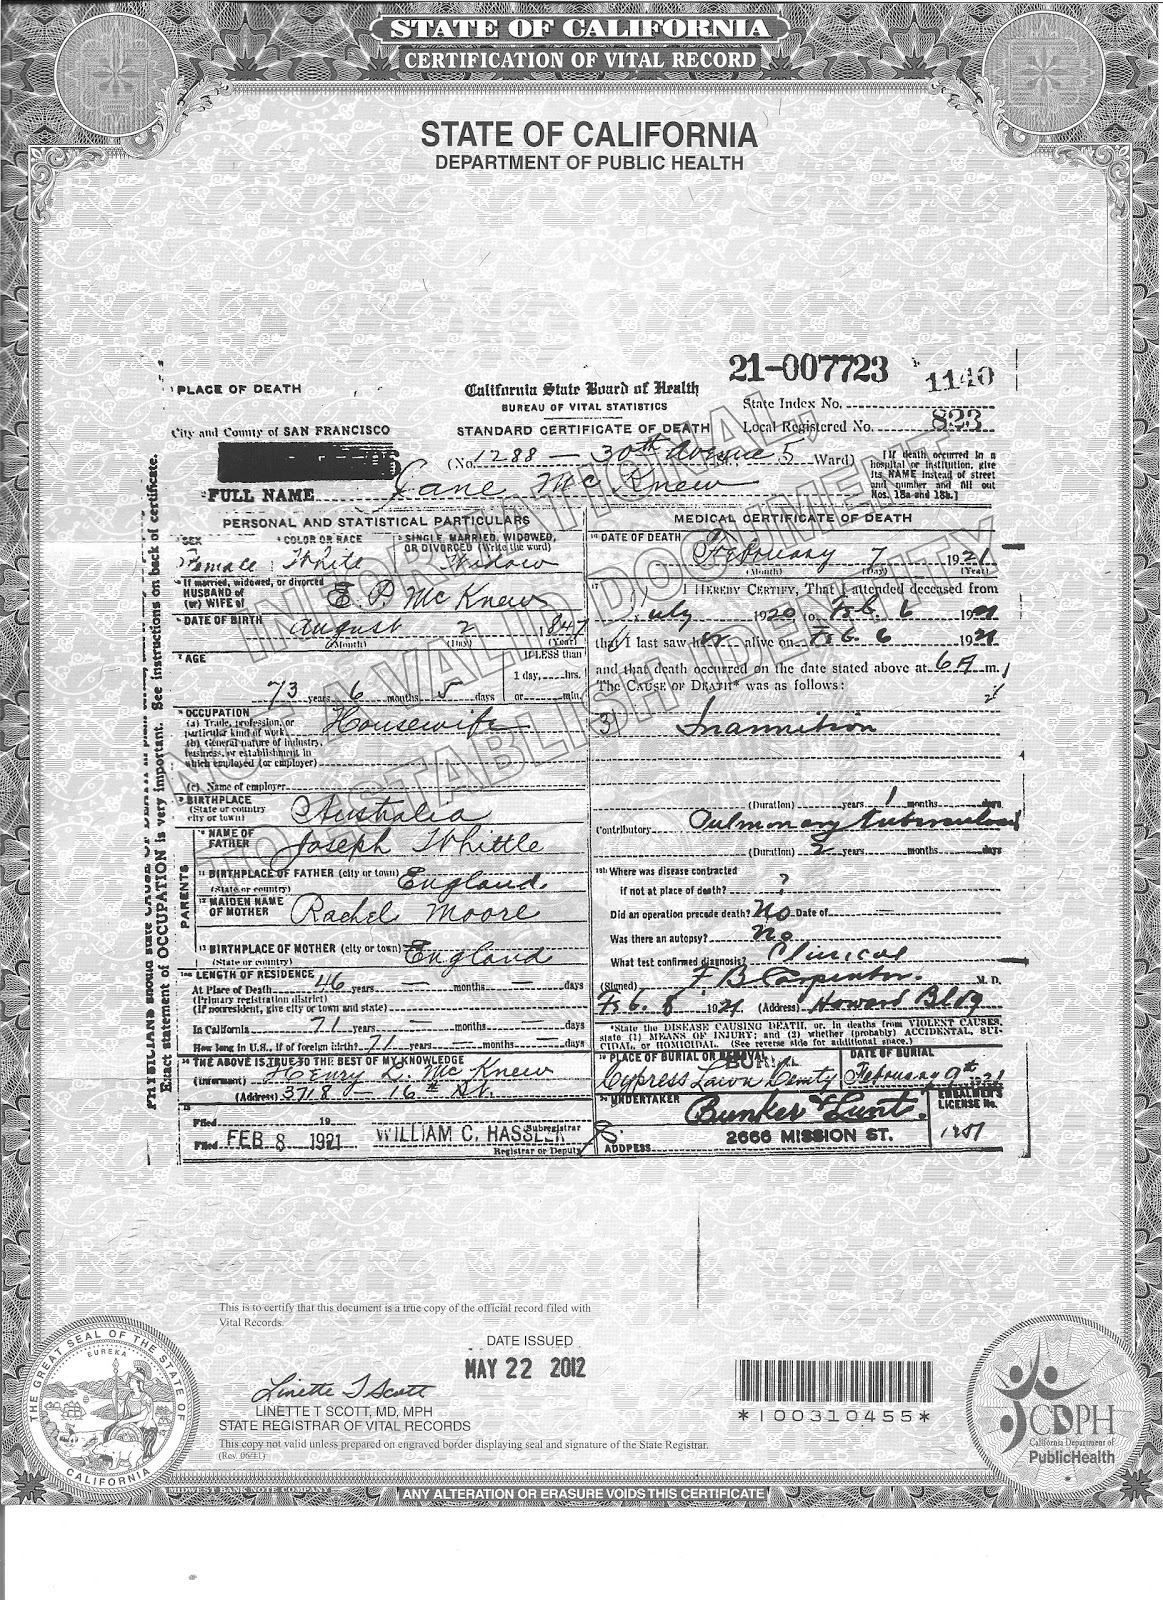 STATE OF CALIFORNIA
CERTIFICATION OF VITAL RECORD
STATE OF CALIFORNIA
DEPARTMENT OF PUBLIC HEALTH
21-007723 1140
PLACE OF DEATH
California State Board of Health
BUREAU OF VITAL STATISTICS
State Index No.
City and County of SAN FRANCISCO
STANDARD CERTIFICATE OF DEATH
Local Registered No. 823
(No. 1288 — 30th Avenue St., 5 Ward)
[If death occurred in a hospital or institution, give its NAME instead of street and number and fill out Nos. 18a and 18b.]
FULL NAME Jane McKnew
PERSONAL AND STATISTICAL PARTICULARS
SEX Female
COLOR OR RACE White
SINGLE, MARRIED, WIDOWED, OR DIVORCED (Write the word) Widow
If married, widowed, or divorced
HUSBAND of
(or) WIFE of E. P. McKnew
DATE OF BIRTH August 2 1847
(Month) (Day) (Year)
AGE
If LESS than
1 day, hrs.
73 years 6 months 5 days or min.
OCCUPATION
(a) Trade, profession, or particular kind of work Housewife
(b) General nature of industry, business, or establishment in which employed (or employer)
(c) Name of employer
BIRTHPLACE
(State or country
city or town) Australia
PARENTS
10 NAME OF FATHER Joseph Whittle
11 BIRTHPLACE OF FATHER (city or town) England
(State or country)
12 MAIDEN NAME OF MOTHER Rachel Moore
13 BIRTHPLACE OF MOTHER (city or town) England
(State or country)
LENGTH OF RESIDENCE
At Place of Death 46 years — months — days
(Primary registration district)
(If nonresident, give city or town and state)
In California 71 years — months — days
How long in U.S., if of foreign birth? 71 years — months — days
14 THE ABOVE IS TRUE TO THE BEST OF MY KNOWLEDGE
(Informant) Henry L. McKnew
(Address) 3718 — 16th St.
15
Filed 19
Subregistrar
Filed FEB 8 1921 WILLIAM C. HASSLER
Registrar or Deputy
MEDICAL CERTIFICATE OF DEATH
16 DATE OF DEATH
February 7 1921
(Month) (Day) (Year)
17 I HEREBY CERTIFY, That I attended deceased from
July 1920 to Feb. 6 1921
that I last saw her alive on Feb. 6 1921
and that death occurred on the date stated above at 6 A m.
The CAUSE OF DEATH* was as follows:
Inannition
(Duration) years 1 months days
Contributory Pulmonary Tuberculosis
(Duration) 2 years months days
18b Where was disease contracted
if not at place of death? ?
Did an operation precede death? No Date of —
Was there an autopsy? No
What test confirmed diagnosis? Clinical
(Signed) F B Carpenter M. D.
Feb. 8 1921 (Address) Howard Bldg
*State the DISEASE CAUSING DEATH, or, in deaths from VIOLENT CAUSES, state (1) MEANS OF INJURY; and (2) whether (probably) ACCIDENTAL, SUICIDAL, or HOMICIDAL. (See reverse side for additional space.)
19 PLACE OF BURIAL OR REMOVAL BURIAL
Cypress Lawn Cemty
DATE OF BURIAL
February 9th 21
20 UNDERTAKER Bunker & Lunt
EMBALMER'S LICENSE No.
ADDRESS 2666 MISSION ST.
PHYSICIANS should state CAUSE OF DEATH in plain
See instructions on back of certificate.
Exact statement of OCCUPATION is very important.
INFORMATIONAL,
NOT A VALID DOCUMENT
TO ESTABLISH IDENTITY
This is to certify that this document is a true copy of the official record filed with
Vital Records.
DATE ISSUED
MAY 22 2012
Linette T Scott
LINETTE T SCOTT, MD, MPH
STATE REGISTRAR OF VITAL RECORDS
This copy not valid unless prepared on engraved border displaying seal and signature of the State Registrar.
*100310455*
THE GREAT SEAL OF THE STATE OF CALIFORNIA
EUREKA
CDPH
California Department of
PublicHealth
MIDWEST BANK NOTE COMPANY
ANY ALTERATION OR ERASURE VOIDS THIS CERTIFICATE